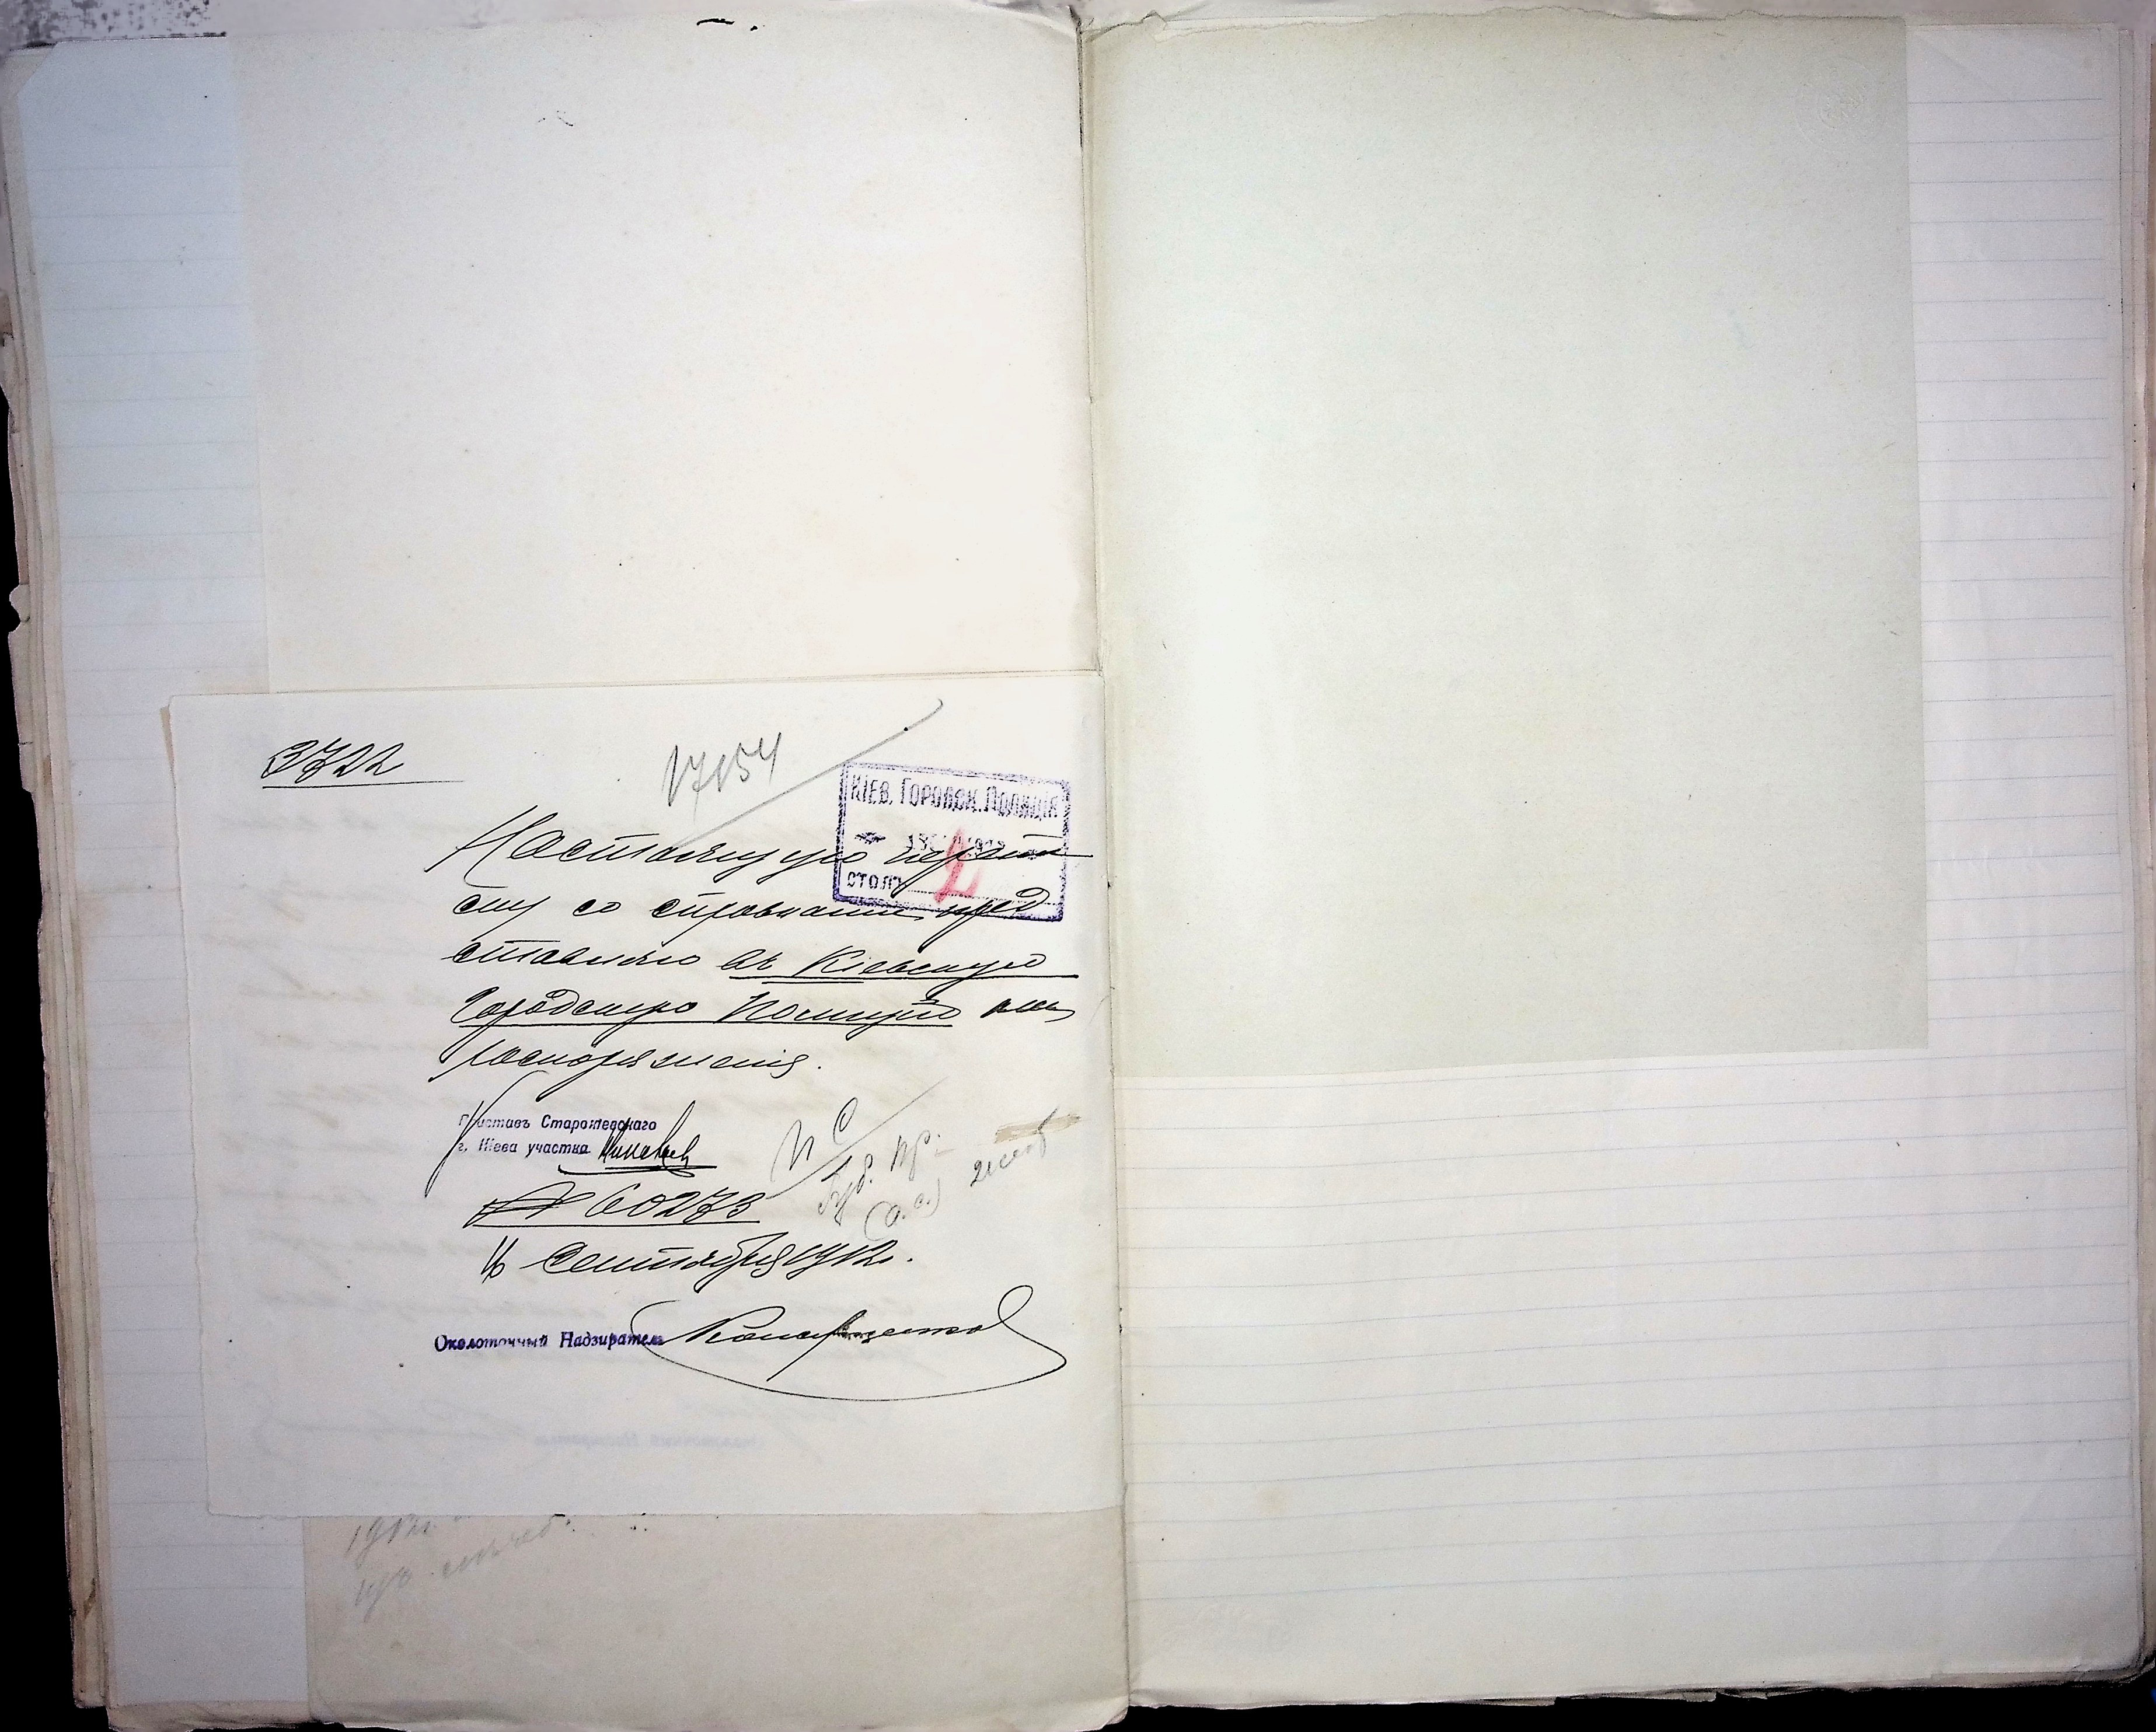 3722
17154
КІЕВ. ГОРОДСК. ПОЛИЦІЯ
1912
столъ 2
Настоящую перепи
ску со справками пред
ставляю въ Кіевскую
Городскую Полицію на
распоряженіе.
Приставъ Старокіевскаго
г. Кіева участка
№ 60273
16 Сентября 1912 г.
Околоточный Надзиратель
1912 г.